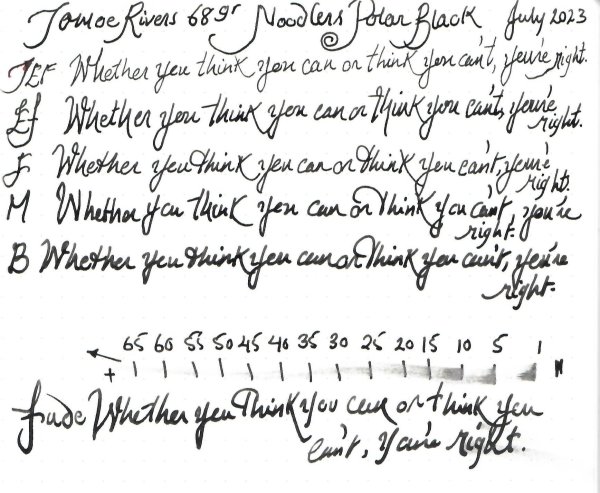 Tomoe Rivers 68gr Noodlers Polar Black July 2023
JEF Whether you think you can or think you can't, you're right.
Ef Whether you think you can or think you can't, you're right.
F Whether you think you can or think you can't, you're right.
M Whether you think you can or think you can't, you're right.
B Whether you think you can or think you can't, you're right.
65 60 55 50 45 40 35 30 25 20 15 10 5 1
+
Fude Whether you think you can or think you can't, you're right.